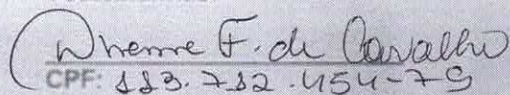 F. de Carvalho
CPF: 113.712.454-79